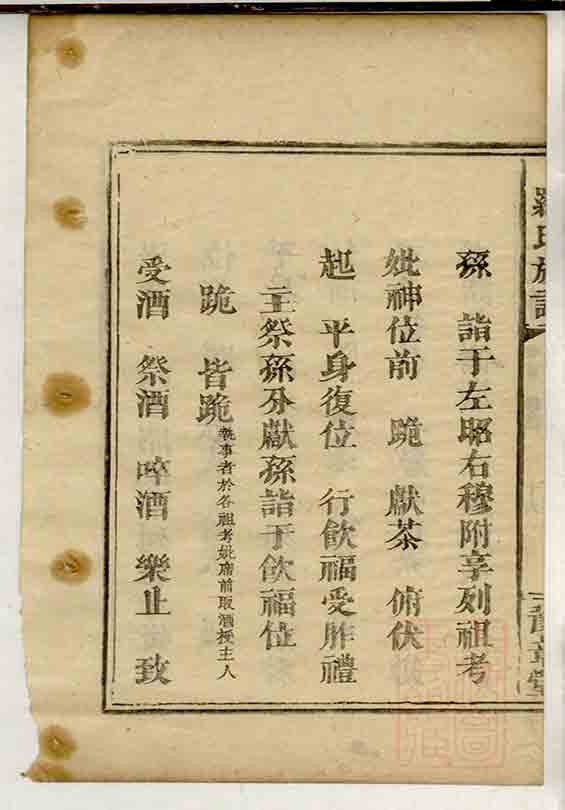 羅氏族譜
孫 詣于左昭右穆附享列祖考
妣神位前 跪 獻茶 俯伏
起 平身復位 行飲福受胙禮
主祭孫分獻孫詣于飲福位
跪 皆跪 執事者於各祖考妣席前取酒授主人
受酒 祭酒 啐酒 樂止 致